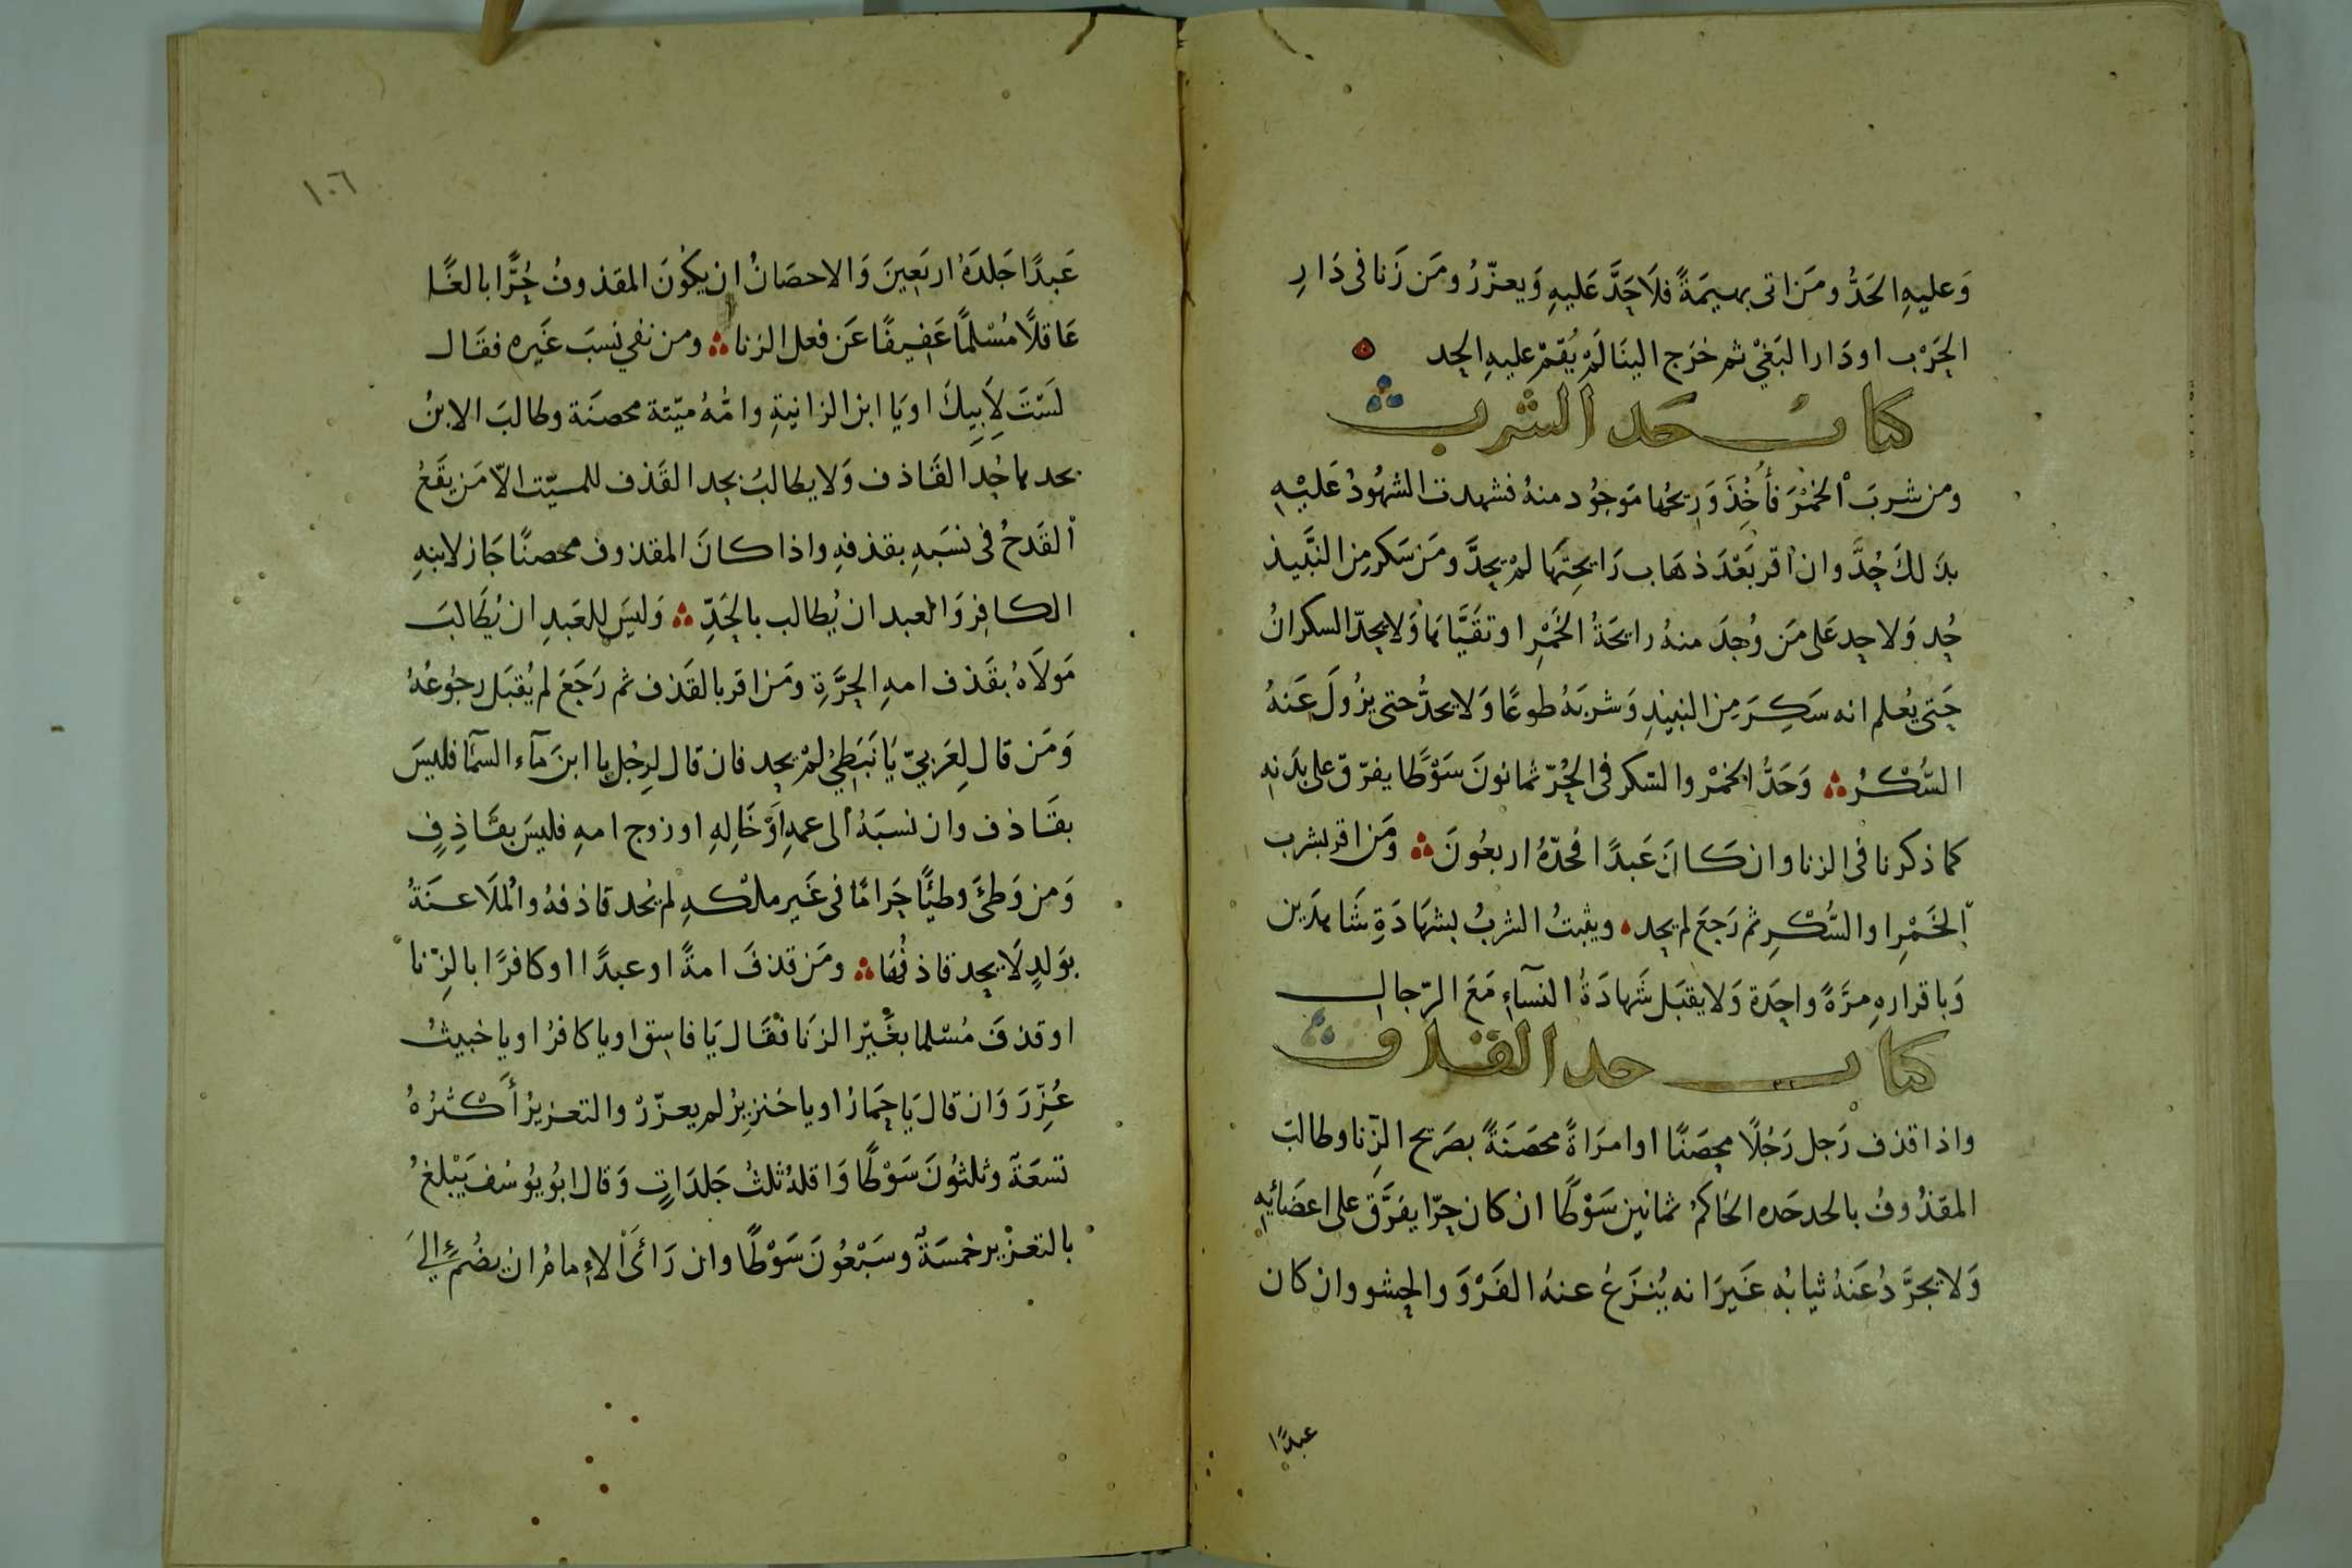 وَعليهِ الحَدُّ ومَن اتى بهيمَةً فلَا حَدَّ عَليهِ وَيعزّرُ ومَن زَنا فى دَارِ
الحَرْب اودَار البَغيْ ثم خرَج الينَا لَمْ يُقمْ عليهِ الحد
كتاب حَد الشرب
ومن شربَ الخمْرَ فأُخِذَ وَرِيحُها مَوجُود منهُ فشهدت الشهُودُ عَليْهِ
بذَلكَ حُدَّ وان اقر بَعْدَ ذهَاب رَايحِتَهَا لمْ يحدَّ ومَن سَكر مِن النَّبيذ
حُد وَلا حد عَلى مَن وُجدَ منهُ رايحَةُ الخَمْرِ او تقَيَّاهَا وَلا يحدّ السكرانُ
حَتى يُعلم انه سَكِرَ مِن النبيذِ وَشربَهُ طوعًا وَلا يحدُّ حتى يزُولَ عَنهُ
السُّكْرُ وَحَدُّ الخمْر والسّكر فى الحُرّ ثمانونَ سَوْطًا يفرّق على بدَنهِ
كما ذكرنا فى الزنا وان كَانَ عَبدًا فحدّهُ اربعُونَ ومَن اقر بشرب
الخَمْرِ او السُّكْرِ ثم رَجعَ لم يحد ويثبتُ الشربُ بشهَادَةِ شَاهدَين
وَباقرارهِ مرَّةً واحِدَة وَلا يقبَل شَهادَةُ النسآءِ مَعَ الرّجال
كتاب حد القذف
واذا قذف رَجل رَجُلًا محصَنًا او امرَاةً محصَنَةً بصَريح الزّنا وطالبَ
المقذُوفُ بالحد حَده الحَاكمُ ثمانين سَوْطًا ان كان حرّا يفرَّق على اعضَائِهِ
وَلا يجرَّدُ عَنهُ ثيابُه غَيرَ انه يُنزَعُ عنهُ الفَرْوَ والحشو وان كان
عبدًا
١٠٦
عَبدًا جَلدَهُ اربَعِينَ وَالاحصَانُ ان يكوُنَ المقذوفُ حُرًّا بالغًا
عَاقلًا مُسْلمًا عَفِيفًا عَن فعل الزنا ومن نفى نسبَ غَيره فقَال
لَستَ لِأبِيكَ او يَا ابن الزانيةِ وامُّهُ ميّتة محصنَة وطالبَ الابنُ
بحدها حُدَّ القَاذف وَلا يطالبُ بحد القَذف للميّت الّا مَن يقَعُ
القَدحُ فى نسَبهِ بقذفهِ واذا كانَ المقذوف محصنًا جَاز لابنهِ
الكافِر وَالعبد ان يُطالب بالحَدِّ وَليسَ للعَبدِ ان يُطَالبَ
مَولَاهُ بقَذف امهِ الحرَّةِ ومَن اقر بالقذف ثم رَجَعَ لم يُقبَل رجُوعُهُ
وَمَن قال لِعَرَبيّ يَا نَبَطِيُّ لمْ يحد فان قال لرجُل يا ابنَ مآء السمَآ فليسَ
بقَاذف وان نسبَهُ الى عمهِ اَوْ خَالِهِ او زوج امهِ فليسَ بقَاذِفٍ
وَمن وَطئَ وطئًا حَرامًا فى غَير ملْكهِ لم يُحد قاذفهُ والمُلَاعنَةُ
بوَلدٍ لَا يحد قاذفُهَا ومَن قذفَ امةً او عبدًا او كافرًا بالزّنا
او قذفَ مُسْلما بغَيْر الزنَا فقَال يَا فاسق او يا كافرُ او يا خبيثُ
عُزِّرَ وَان قال يَا حِمَارُ او يا خنزيرُ لم يعزّرْ والتعزيرُ أكْثرُهُ
تسعَة وثلثُونَ سَوْطًا وَاقلهُ ثلثُ جَلدَاتٍ وَقال ابُو يوُسُف يَبْلغُ
بالتعزْير خمسَةً وسَبْعُونَ سَوْطًا وان رَائَ الإمامُ ان يضُمَّ الىَ